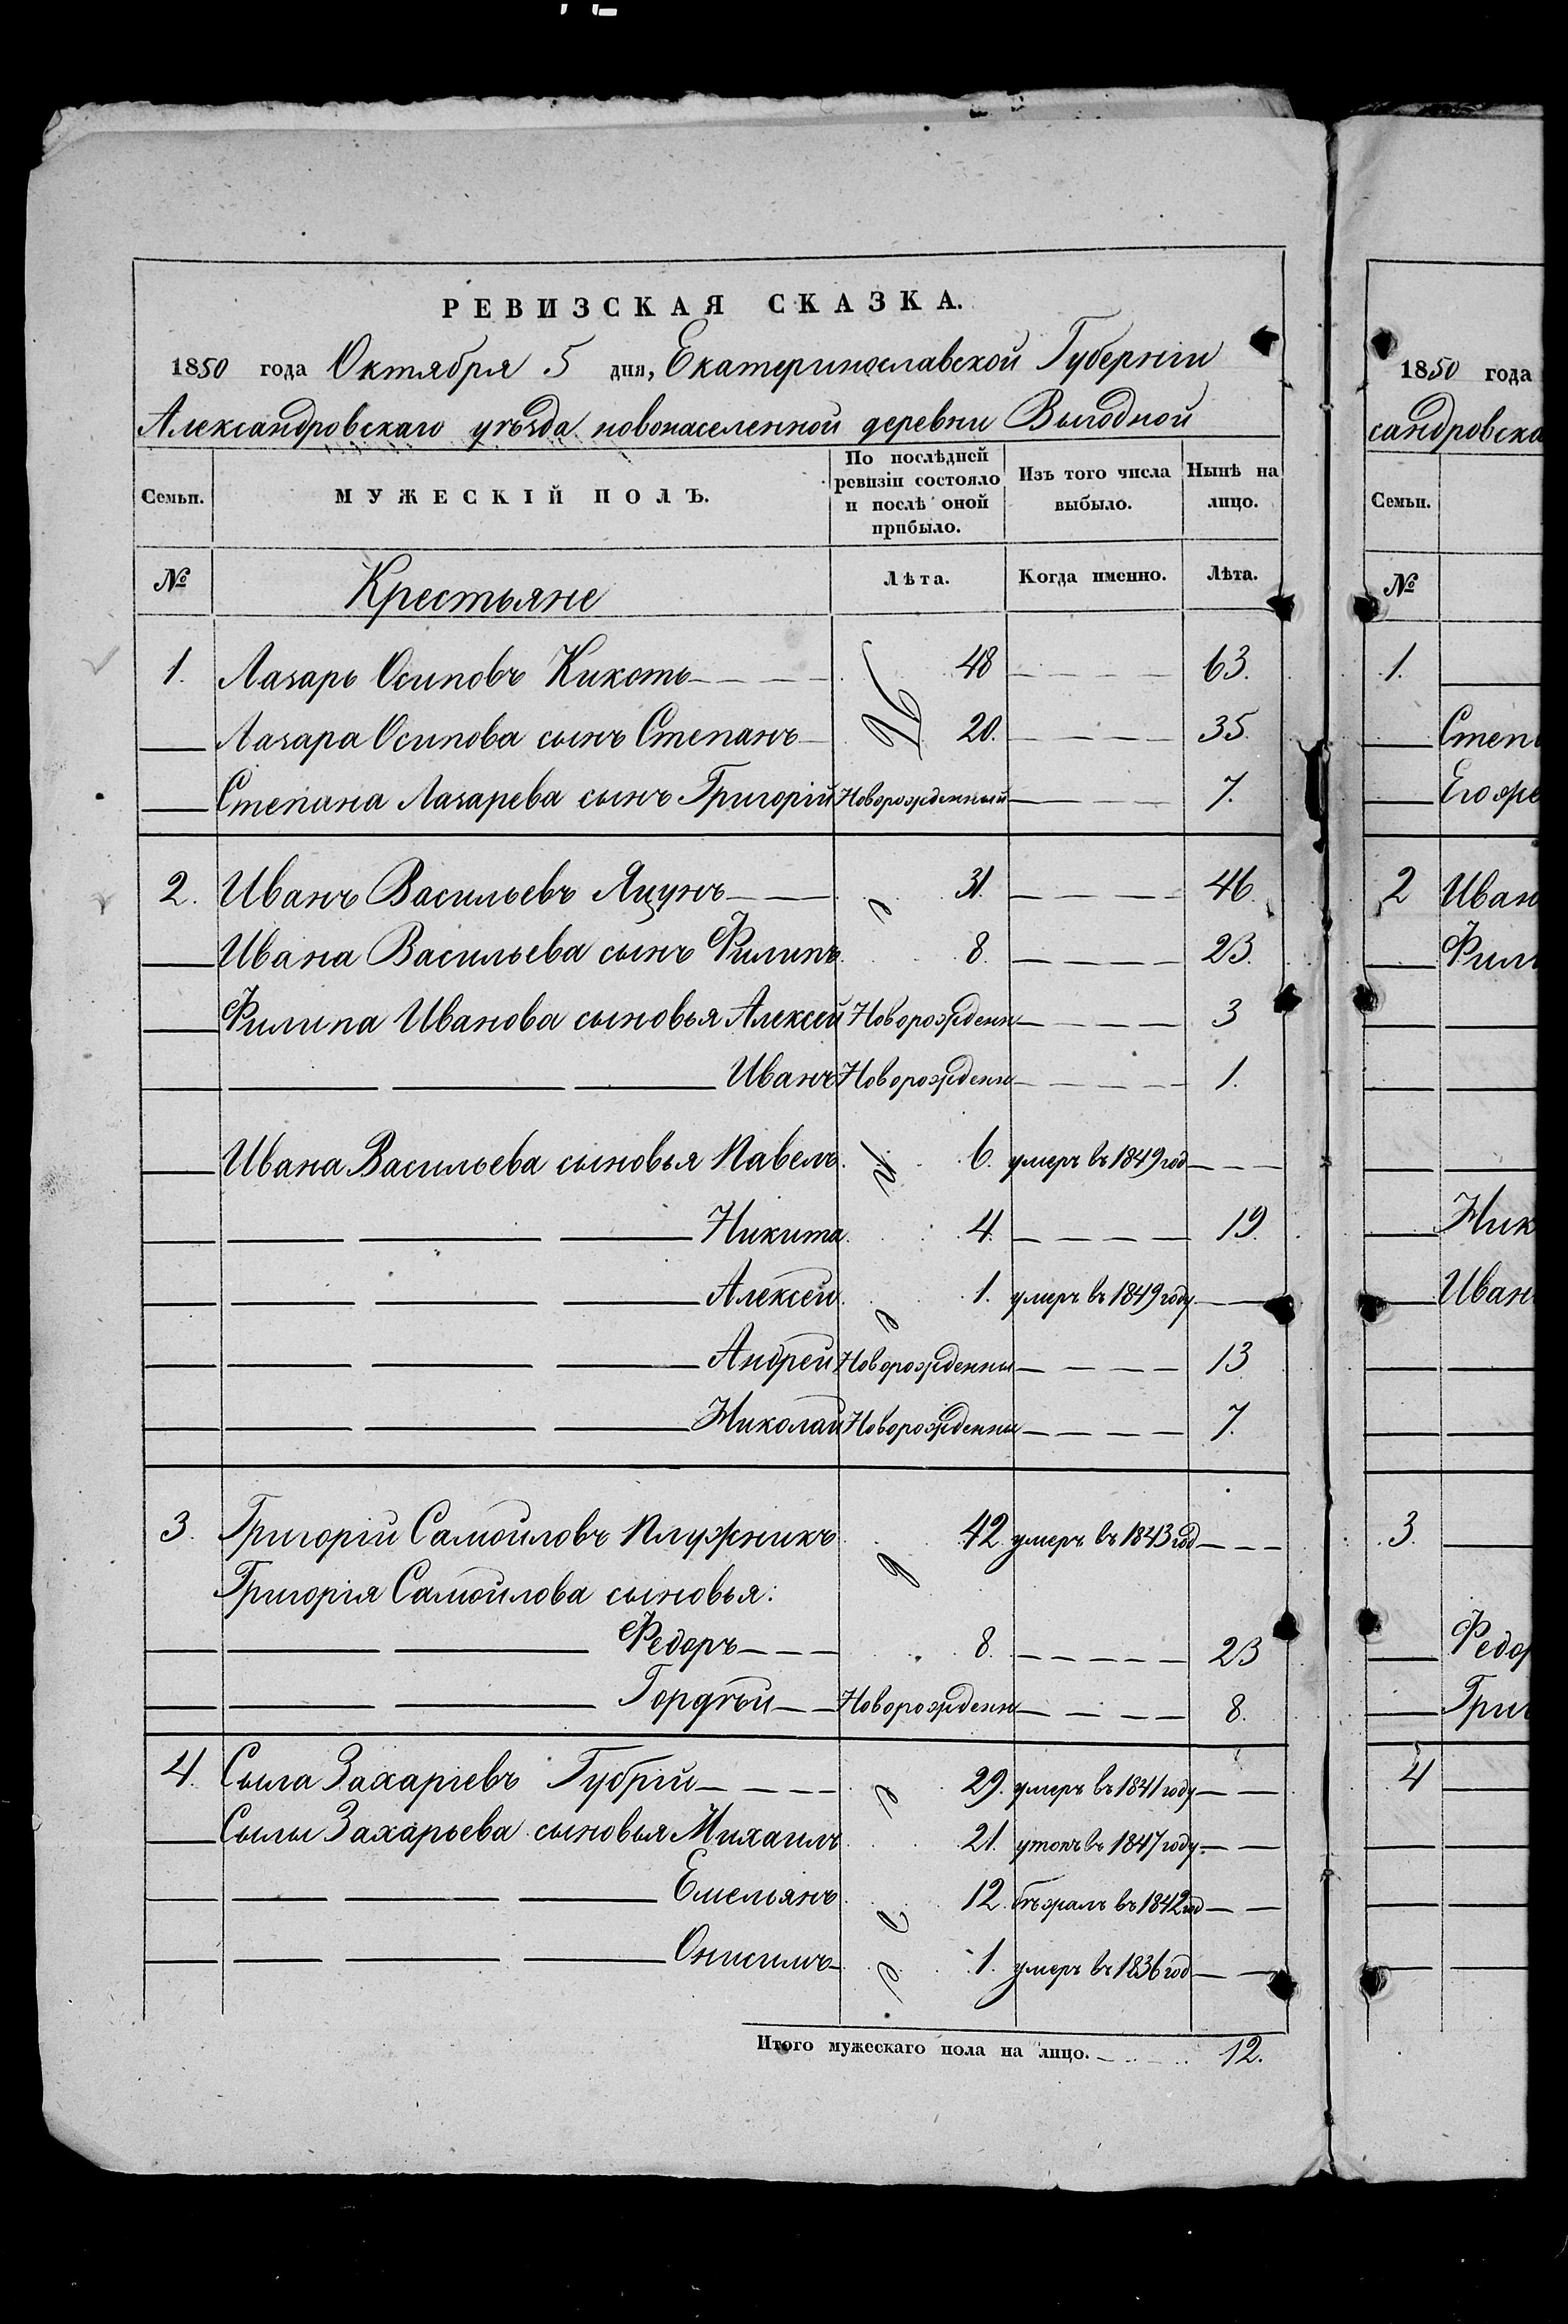 РЕВИЗСКАЯ СКАЗКА.
1850 года Октября 5 дня, Екатеринославской Губернiи
Александровскаго уѣзда новонаселенной деревни Выгодной
Семьи. МУЖЕСКIЙ ПОЛЪ. По послѣдней ревизiи состояло и послѣ оной прибыло. Изъ того числа выбыло. Нынѣ на лицо.
№ Крестьяне Лѣта. Когда именно. Лѣта.
1. Лазарь Осиповъ Кихоть 48 63.
Лазара Осипова сынъ Степанъ 20. 35.
Степана Лазарева сынъ Григорiй Новорожденный 7.
2. Иванъ Васильевъ Яцунъ 31. 46.
Ивана Васильева сынъ Филипъ 8. 23.
Филипа Иванова сыновья Алексей Новорожденн 3
Иванъ Новорожденн 1.
Ивана Васильева сыновья Павелъ 6. умеръ въ 1849 год
Никита 4. 19.
Алексей 1. умеръ въ 1849 году
Андрей Новорожденны 13
Николай Новорожденны 7.
3. Григорiй Самойловъ Плужникъ 42 умеръ въ 1843 год
Григорiя Самойлова сыновья:
Федоръ 8. 23
Гордѣй Новорожденн 8.
4. Сыла Захарiевъ Губрiй 29. умеръ въ 1841 году
Сылы Захарьева сыновья Михаилъ 21. утопъ въ 1847 году.
Емельянъ 12. бѣжалъ въ 1842 год
Онисимъ 1. умеръ въ 1836 год
Итого мужескаго пола на лицо. 12.
1850 года
сандровска
Семьи.
№
1.
Степ
Его же
2 Иван
Фили
Ник
Иван
3.
Федор
Григ
4